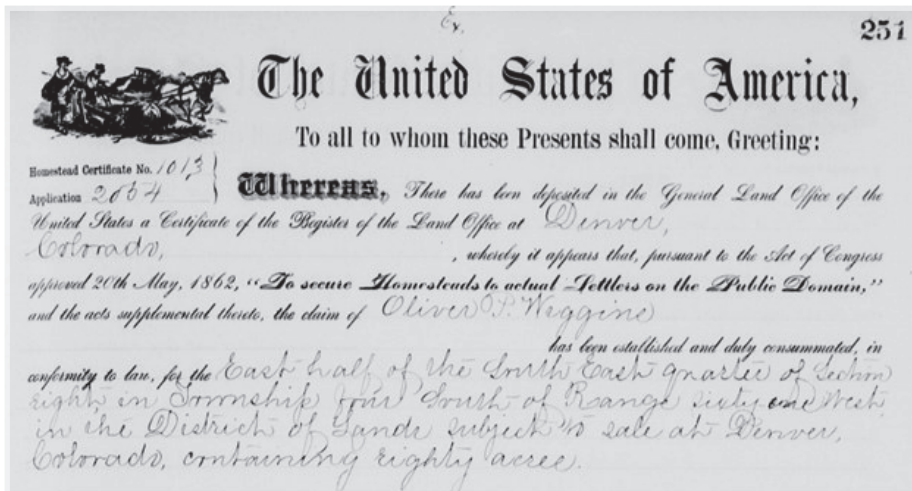 Ex.
251
The United States of America,
To all to whom these Presents shall come, Greeting:
Homestead Certificate No. 1013
Application 2034
Whereas, There has been deposited in the General Land Office of the
United States a Certificate of the Register of the Land Office at Denver,
Colorado, , whereby it appears that, pursuant to the Act of Congress
approved 20th May, 1862, “To secure Homesteads to actual Settlers on the Public Domain,”
and the acts supplemental thereto, the claim of Oliver P. Wiggins
has been established and duly consummated, in
conformity to law, for the East half of the South East quarter of Section
eight in Township four South of Range sixty one West
in the District of Lands subject to sale at Denver,
Colorado, containing eighty acres.